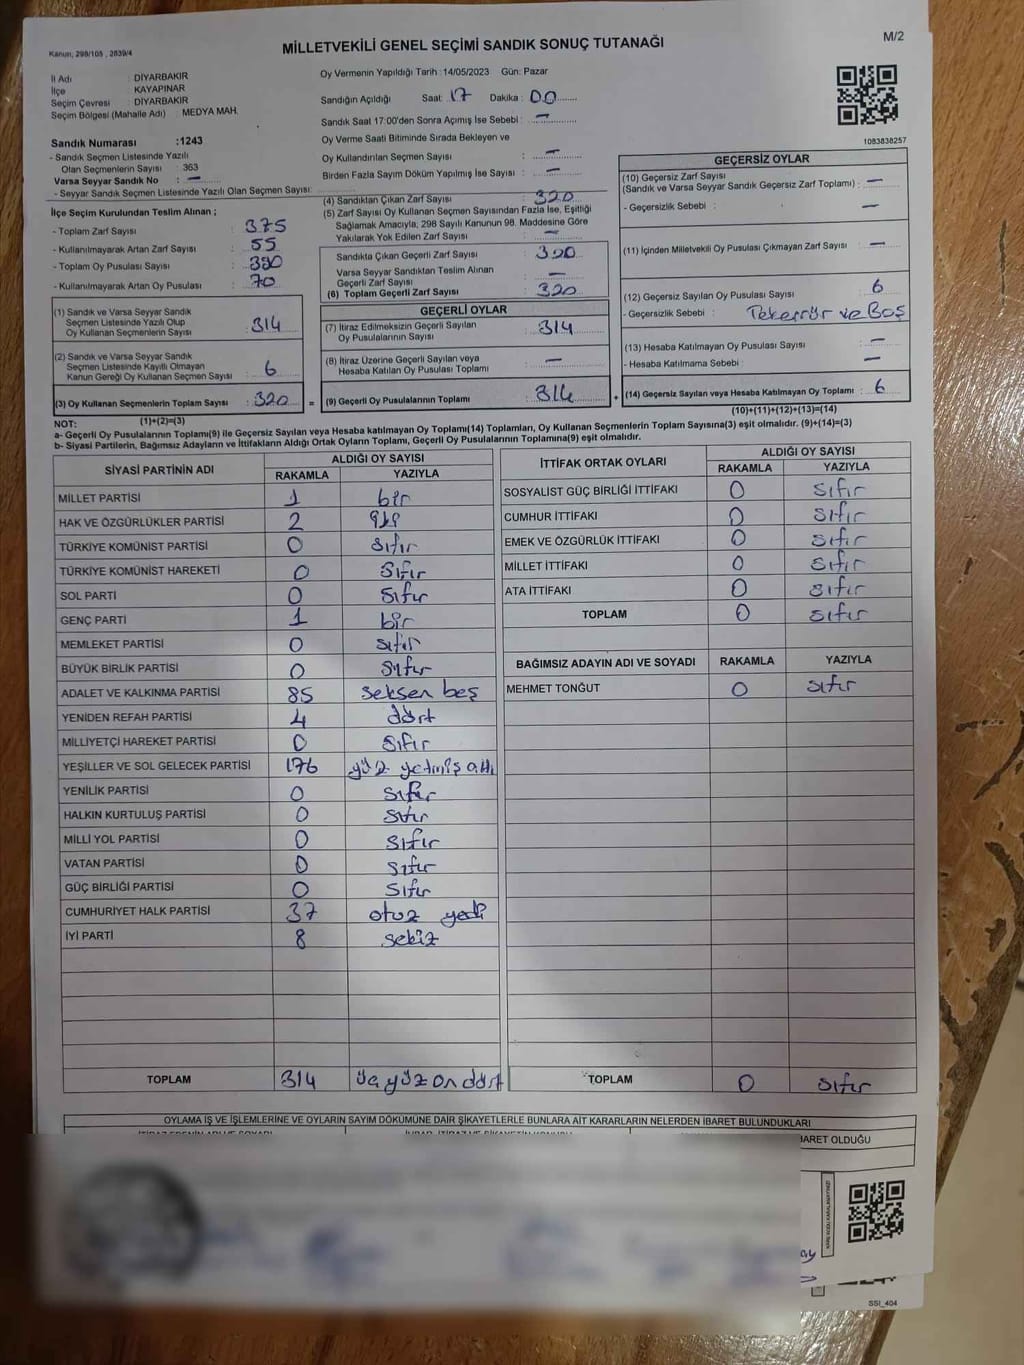 Kanun, 298/105 , 2839/4
MİLLETVEKİLİ GENEL SEÇİMİ SANDIK SONUÇ TUTANAĞI
M/2
İl Adı : DİYARBAKIR
İlçe : KAYAPINAR
Seçim Çevresi : DİYARBAKIR
Seçim Bölgesi (Mahalle Adı) : MEDYA MAH.
Oy Vermenin Yapıldığı Tarih :14/05/2023 Gün: Pazar
Sandığın Açıldığı Saat: 17 Dakika : 00
Sandık Saat 17:00'den Sonra Açımış İse Sebebi : —
Oy Verme Saati Bitiminde Sırada Bekleyen ve
Oy Kullandırılan Seçmen Sayısı : —
Birden Fazla Sayım Döküm Yapılmış İse Sayısı : —
1083838257
Sandık Numarası :1243
- Sandık Seçmen Listesinde Yazılı
Olan Seçmenlerin Sayısı : 363
Varsa Seyyar Sandık No : —
- Seyyar Sandık Seçmen Listesinde Yazılı Olan Seçmen Sayısı:
İlçe Seçim Kurulundan Teslim Alınan ;
- Toplam Zarf Sayısı : 375
- Kullanılmayarak Artan Zarf Sayısı : 55
- Toplam Oy Pusulası Sayısı :
- Kullanılmayarak Artan Oy Pusulası : 70
(1) Sandık ve Varsa Seyyar Sandık
Seçmen Listesinde Yazılı Olup
Oy Kullanan Seçmenlerin Sayısı : 314
(2) Sandık ve Varsa Seyyar Sandık
Seçmen Listesinde Kayıtlı Olmayan
Kanun Gereği Oy Kullanan Seçmen Sayısı : 6
(3) Oy Kullanan Seçmenlerin Toplam Sayısı : 320 =
(1)+(2)=(3)
(4) Sandıktan Çıkan Zarf Sayısı : 320
(5) Zarf Sayısı Oy Kullanan Seçmen Sayısından Fazla İse, Eşitliği
Sağlamak Amacıyla; 298 Sayılı Kanunun 98. Maddesine Göre
Yakılarak Yok Edilen Zarf Sayısı : —
Sandıkta Çıkan Geçerli Zarf Sayısı : 320
Varsa Seyyar Sandıktan Teslim Alınan
Geçerli Zarf Sayısı : —
(6) Toplam Geçerli Zarf Sayısı : 320
GEÇERLİ OYLAR
(7) İtiraz Edilmeksizin Geçerli Sayılan
Oy Pusulalarının Sayısı : 314
(8) İtiraz Üzerine Geçerli Sayılan veya
Hesaba Katılan Oy Pusulası Toplamı : —
(9) Geçerli Oy Pusulalarının Toplamı : 314 +
GEÇERSİZ OYLAR
(10) Geçersiz Zarf Sayısı
(Sandık ve Varsa Seyyar Sandık Geçersiz Zarf Toplamı) : —
- Geçersizlik Sebebi : —
(11) İçinden Milletvekili Oy Pusulası Çıkmayan Zarf Sayısı : —
(12) Geçersiz Sayılan Oy Pusulası Sayısı : 6
- Geçersizlik Sebebi : Tekerrür ve Boş
(13) Hesaba Katılmayan Oy Pusulası Sayısı : —
- Hesaba Katılmama Sebebi : —
(14) Geçersiz Sayılan veya Hesaba Katılmayan Oy Toplamı : 6
(10)+(11)+(12)+(13)=(14)
NOT:
a- Geçerli Oy Pusulalarının Toplamı(9) ile Geçersiz Sayılan veya Hesaba katılmayan Oy Toplamı(14) Toplamları, Oy Kullanan Seçmenlerin Toplam Sayısına(3) eşit olmalıdır. (9)+(14)=(3)
b- Siyasi Partilerin, Bağımsız Adayların ve İttifakların Aldığı Ortak Oyların Toplamı, Geçerli Oy Pusulalarının Toplamına(9) eşit olmalıdır.
SİYASİ PARTİNİN ADI ALDIĞI OY SAYISI
RAKAMLA YAZIYLA
MİLLET PARTİSİ 1 bir
HAK VE ÖZGÜRLÜKLER PARTİSİ 2
TÜRKİYE KOMÜNİST PARTİSİ 0 sıfır
TÜRKİYE KOMÜNİST HAREKETİ 0 sıfır
SOL PARTİ 0 sıfır
GENÇ PARTİ 1 bir
MEMLEKET PARTİSİ 0 sıfır
BÜYÜK BİRLİK PARTİSİ 0 sıfır
ADALET VE KALKINMA PARTİSİ 85 seksen beş
YENİDEN REFAH PARTİSİ 4 dört
MİLLİYETÇİ HAREKET PARTİSİ 0 sıfır
YEŞİLLER VE SOL GELECEK PARTİSİ 176 yüz yetmiş altı
YENİLİK PARTİSİ 0 sıfır
HALKIN KURTULUŞ PARTİSİ 0 sıfır
MİLLİ YOL PARTİSİ 0 sıfır
VATAN PARTİSİ 0 sıfır
GÜÇ BİRLİĞİ PARTİSİ 0 sıfır
CUMHURİYET HALK PARTİSİ 37 otuz yedi
İYİ PARTİ 8 sekiz
TOPLAM 314 üçyüz on dört
İTTİFAK ORTAK OYLARI ALDIĞI OY SAYISI
RAKAMLA YAZIYLA
SOSYALİST GÜÇ BİRLİĞİ İTTİFAKI 0 sıfır
CUMHUR İTTİFAKI 0 sıfır
EMEK VE ÖZGÜRLÜK İTTİFAKI 0 sıfır
MİLLET İTTİFAKI 0 sıfır
ATA İTTİFAKI 0 sıfır
TOPLAM 0 sıfır
BAĞIMSIZ ADAYIN ADI VE SOYADI RAKAMLA YAZIYLA
MEHMET TONĞUT 0 sıfır
TOPLAM 0 sıfır
OYLAMA İŞ VE İŞLEMLERİNE VE OYLARIN SAYIM DÖKÜMÜNE DAİR ŞİKAYETLERLE BUNLARA AİT KARARLARIN NELERDEN İBARET BULUNDUKLARI
BARET OLDUĞU
SSI_404